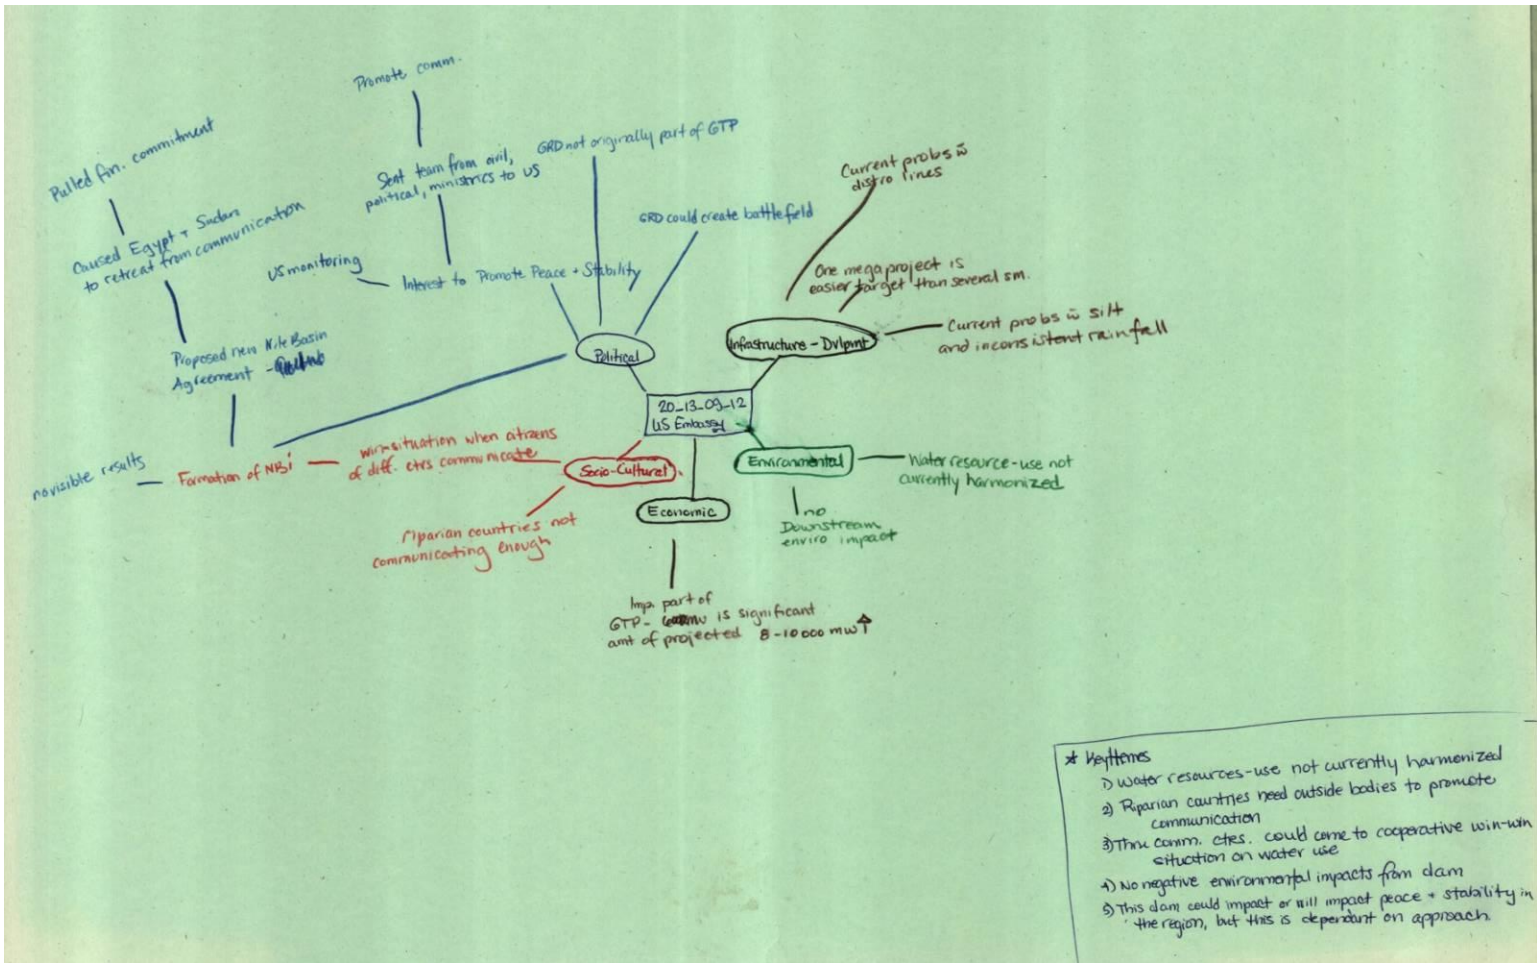 Promote comm.
Sent team from civil,
political, ministries to US
GRD not originally part of GTP
GRD could create battlefield
US monitoring
Interest to Promote Peace + Stability
Pulled fin. commitment
Caused Egypt + Sudan
to retreat from communication
Proposed new Nile Basin
Agreement -
Political
Current probs w̄
distro lines
One mega project is
easier target than several sm.
Current probs w̄ silt
and inconsistent rainfall
Infastructure - Dvlpmt
20_13_09_12
US Embassy
no visible results
Formation of NBI
win-situation when citizens
of diff. ctrs communicate
Socio-Cultural
Riparian countries not
communicating enough
Environmental
Water resource-use not
currently harmonized
no
Downstream
enviro impact
Economic
Imp. part of
GTP - is significant
amt of projected 8-10000 mw ↑
* Key themes
1) Water resources-use not currently harmonized
2) Riparian countries need outside bodies to promote
communication
3) Thru comm. ctres. could come to cooperative win-win
situation on water use
4) No negative environmental impacts from dam
5) This dam could impact or will impact peace + stability in
the region, but this is dependant on approach.